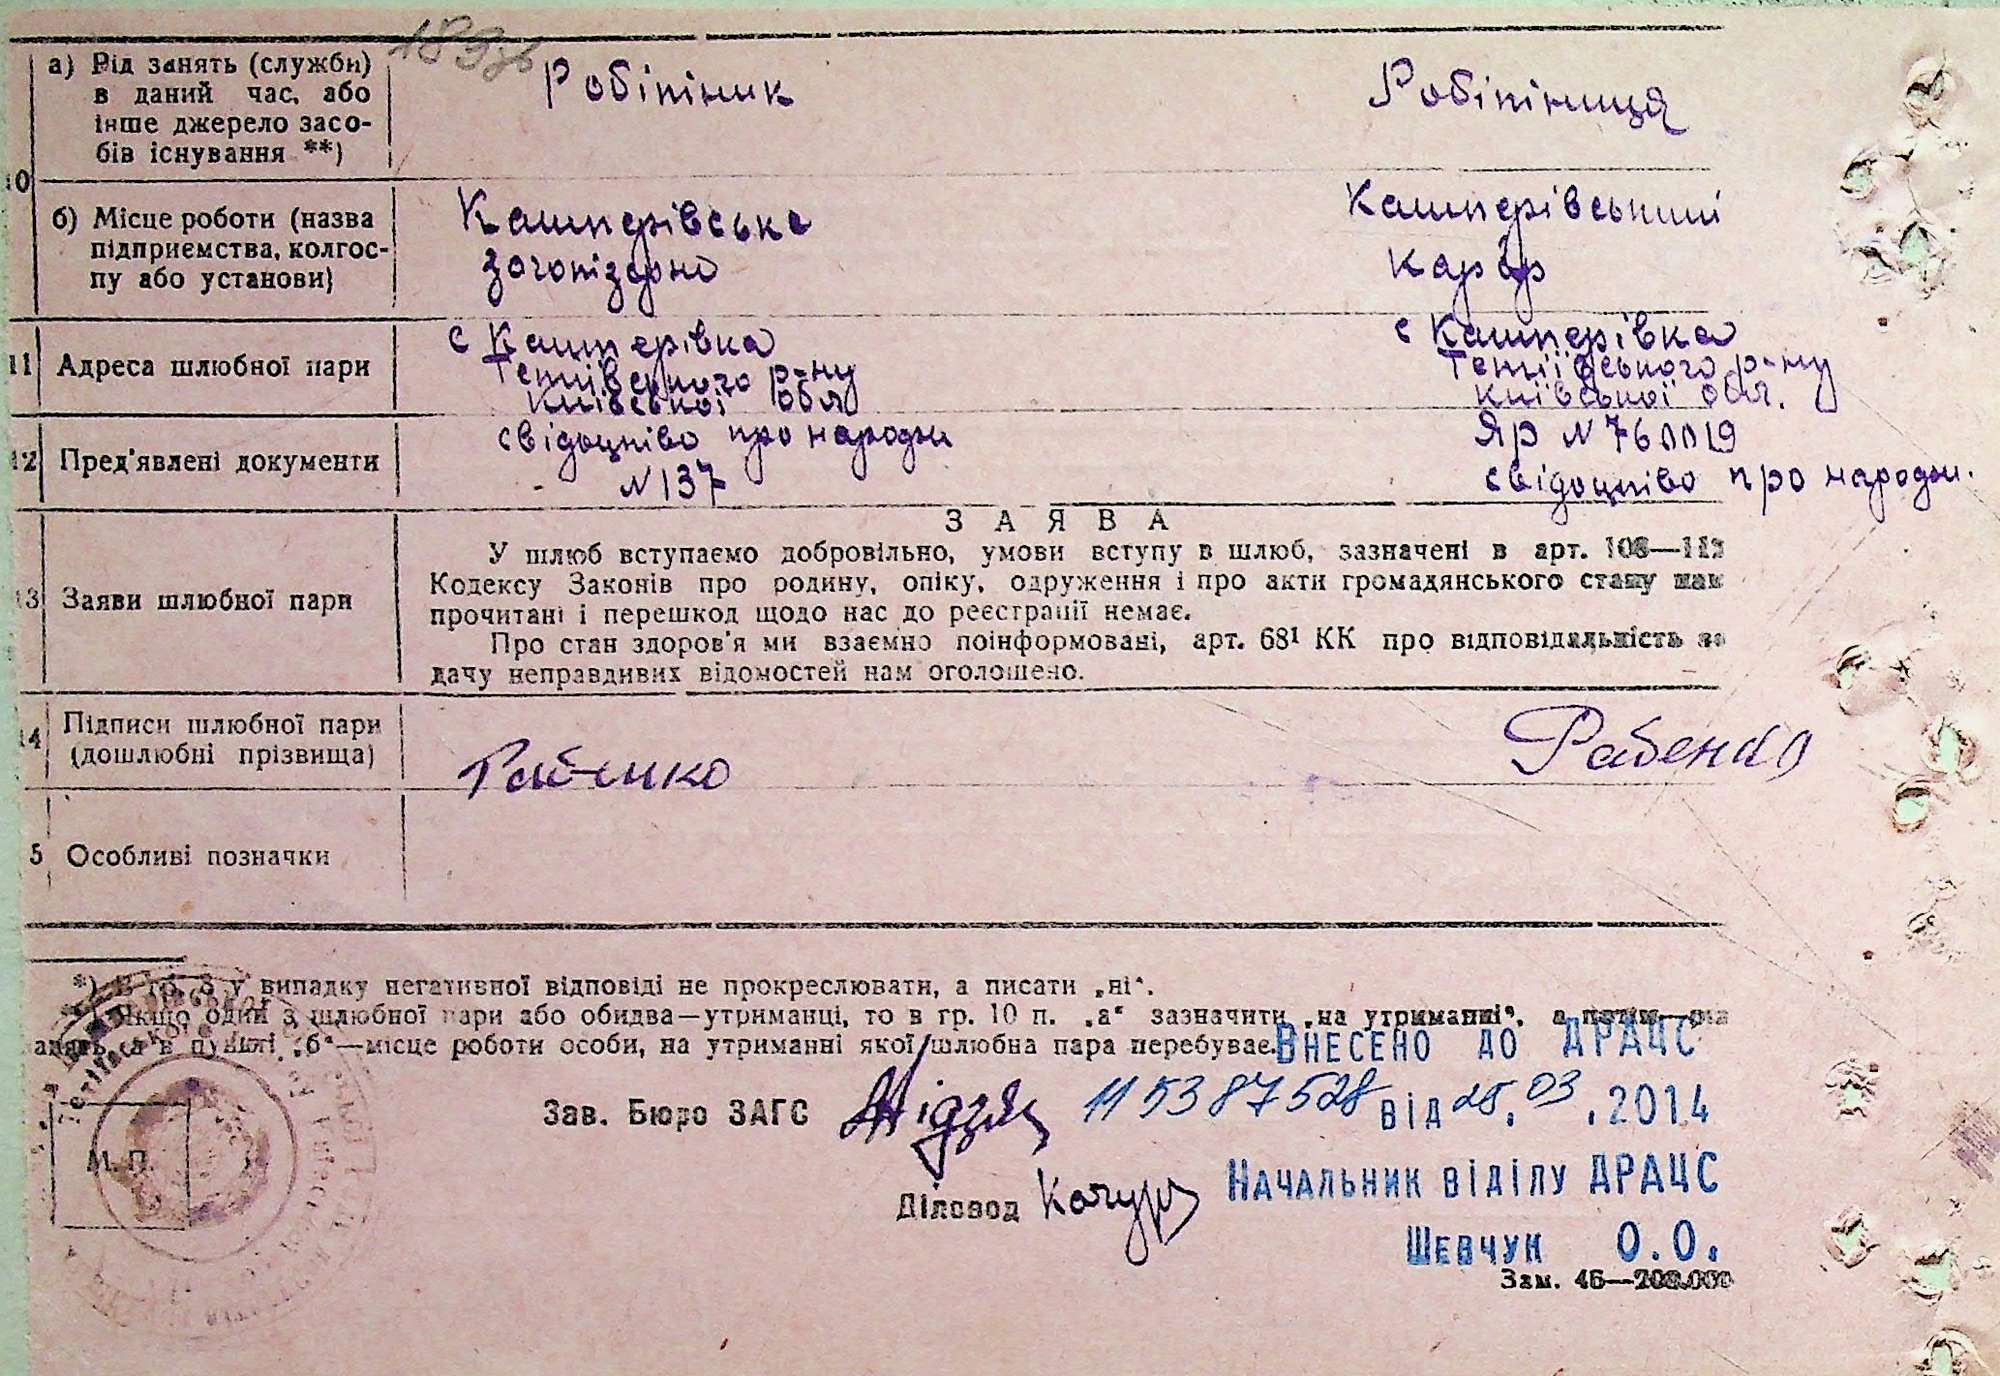 а) Рід занять (служби)
в даний час, або
інше джерело засо-
бів існування **)
Робітник
Робітниця
10
б) Місце роботи (назва
підприємства, колгос-
пу або установи)
Кашперівська
заготзерно
Кашперівський
карєр
11 Адреса шлюбної пари
с Кашперівка
Тетіївського р-ну
Київської обл
с Кашперівка
Тетіївського р-ну
Київської обл.
12 Пред'явлені документи
свідоцтво про народж
N 137
Яр N 760019
свідоцтво про народж.
13 Заяви шлюбної пари
ЗАЯВА
У шлюб вступаємо добровільно, умови вступу в шлюб, зазначені в арт. 108—112
Кодексу Законів про родину, опіку, одруження і про акти громадянського стану нам
прочитані і перешкод щодо нас до реєстрації немає.
Про стан здоров'я ми взаємно поінформовані, арт. 68¹ КК про відповідальність за
дачу неправдивих відомостей нам оголошено.
14 Підписи шлюбної пари
(дошлюбні прізвища)
Рабенко
5 Особливі позначки
*) В гр. 3 у випадку негативної відповіді не прокреслювати, а писати „ні“.
Якщо один з шлюбної пари або обидва—утриманці, то в гр. 10 п. „а“ зазначити „на утриманні“, а
а в пункті „б“—місце роботи особи, на утриманні якої шлюбна пара перебуває.
Внесено до ДРАЦС
Зав. Бюро ЗАГС
11538 7528 від 25.03.2014
Начальник відділу ДРАЦС
Діловод Качур
Шевчук О.О.
М. П.
Зам. 46—200.000